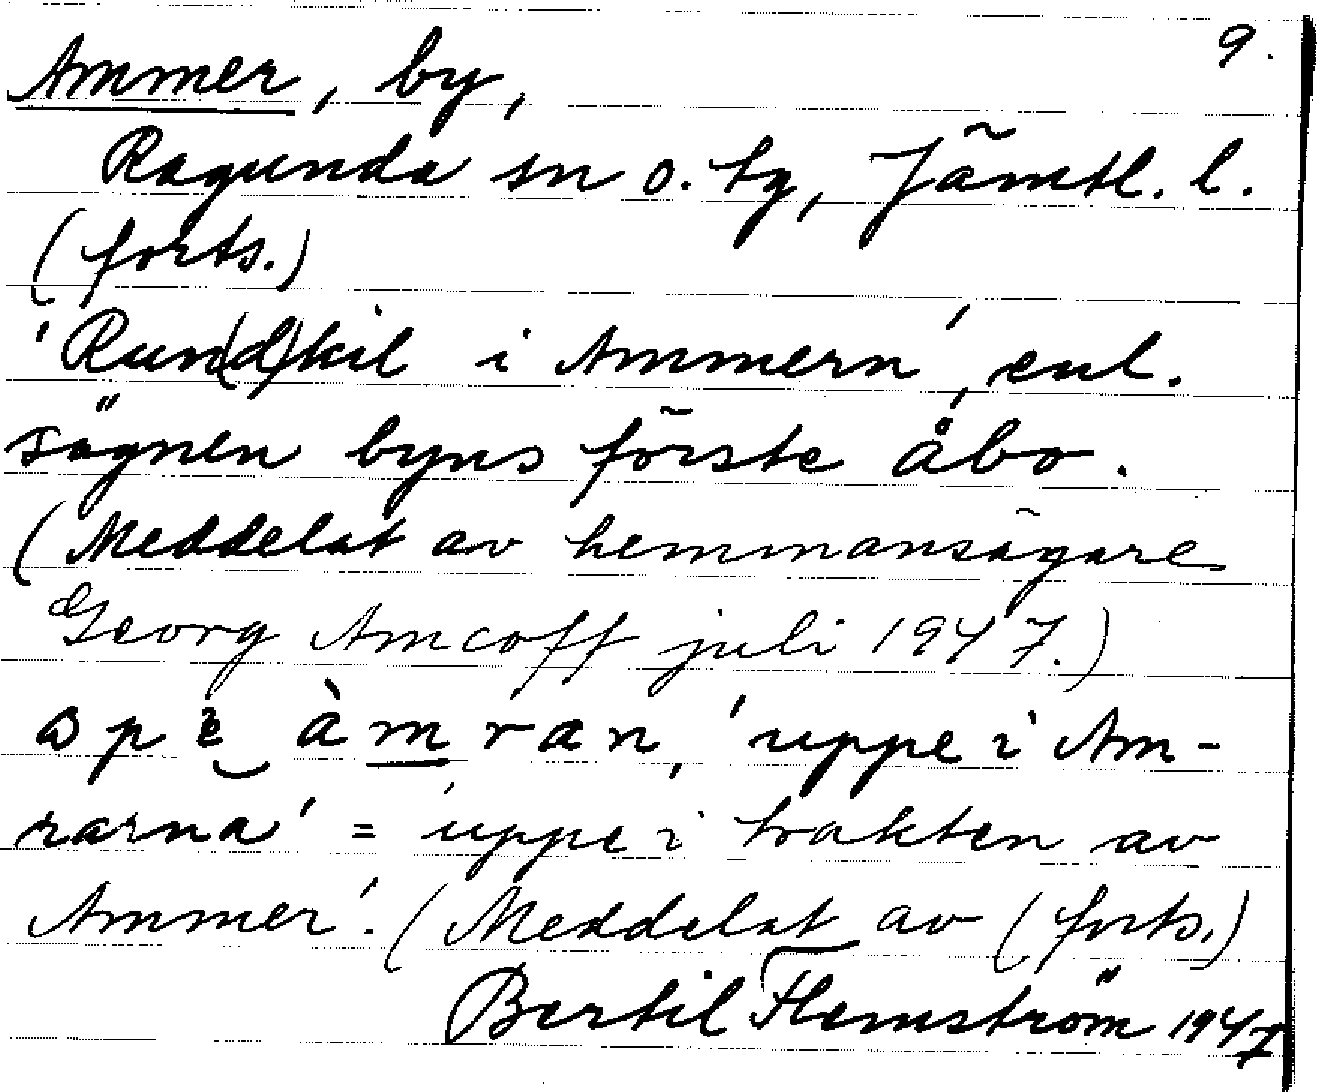 9.
Ammer, by,
Ragunda sn o. tg, Jämtl. l.
(forts.)
'Run(d)kil i Ammern', enl.
sägnen byns förste åbo.
(Meddelat av hemmansägare
Georg Amcoff juli 1947.)
àmran, 'uppe i Am-
rarna' = 'uppe i trakten av
Ammer'. (Meddelat av (forts.)
Bertil Flemström 1947